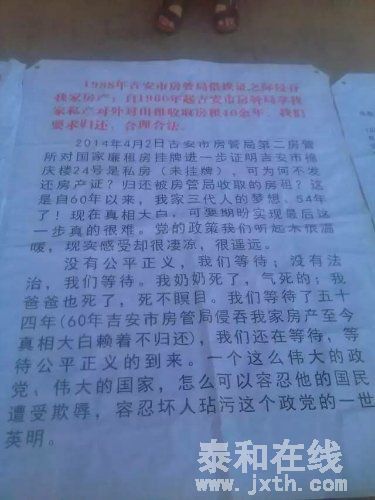 1988年吉安市房管局借换证之际侵吞
我家房产；自1960年起吉安市房管局拿我
家私产对外出租收取房租40余年，我们
要求归还，合理合法。
2014年4月2日吉安市房管局第二房管
所对国家廉租房挂牌进一步证明吉安市
庆楼24号是私房（未挂牌），可为何不发
还房产证？归还被房管局收取的房租？这
是自60年以来，我家三代人的梦想、54年
了！现在真相大白，可要期盼实现最后这
一步真的很难。党的政策我们听起来很温
暖，现实感受却很凄凉，很遥远。
没有公平正义，我们等待；没有法
治，我们等待。我奶奶死了，气死的；我
爸爸也死了，死不瞑目。我们等待了五十
四年(60年吉安市房管局侵吞我家房产至今
真相大白赖着不归还)，我们还在等待，等
待公平正义的到来。一个这么伟大的政
党、伟大的国家，怎么可以容忍他的国民
遭受欺辱，容忍坏人玷污这个政党的一世
英明。
泰和在线
www.jxth.com